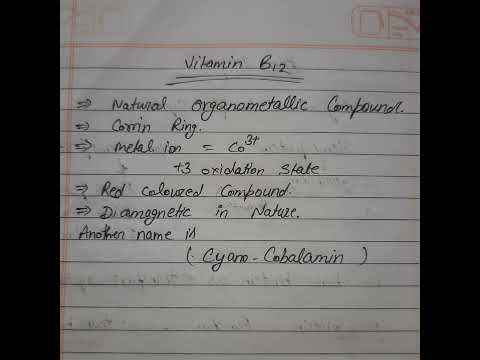 Vitamin B12
⇒ Natural Organometallic Compound.
⇒ Corrin Ring.
⇒ metal ion = Co³⁺
+3 oxidation state
⇒ Red Coloured Compound.
⇒ Diamagnetic in Nature.
Another name is
(Cyano-Cobalamin)